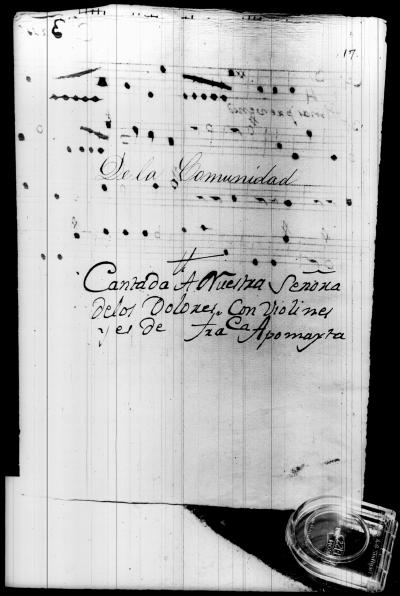 3
17.
De la Comunidad
Cantada A Nuestra Señora
delos Dolores. Con Violines
y es de Fra Ca Apomayta